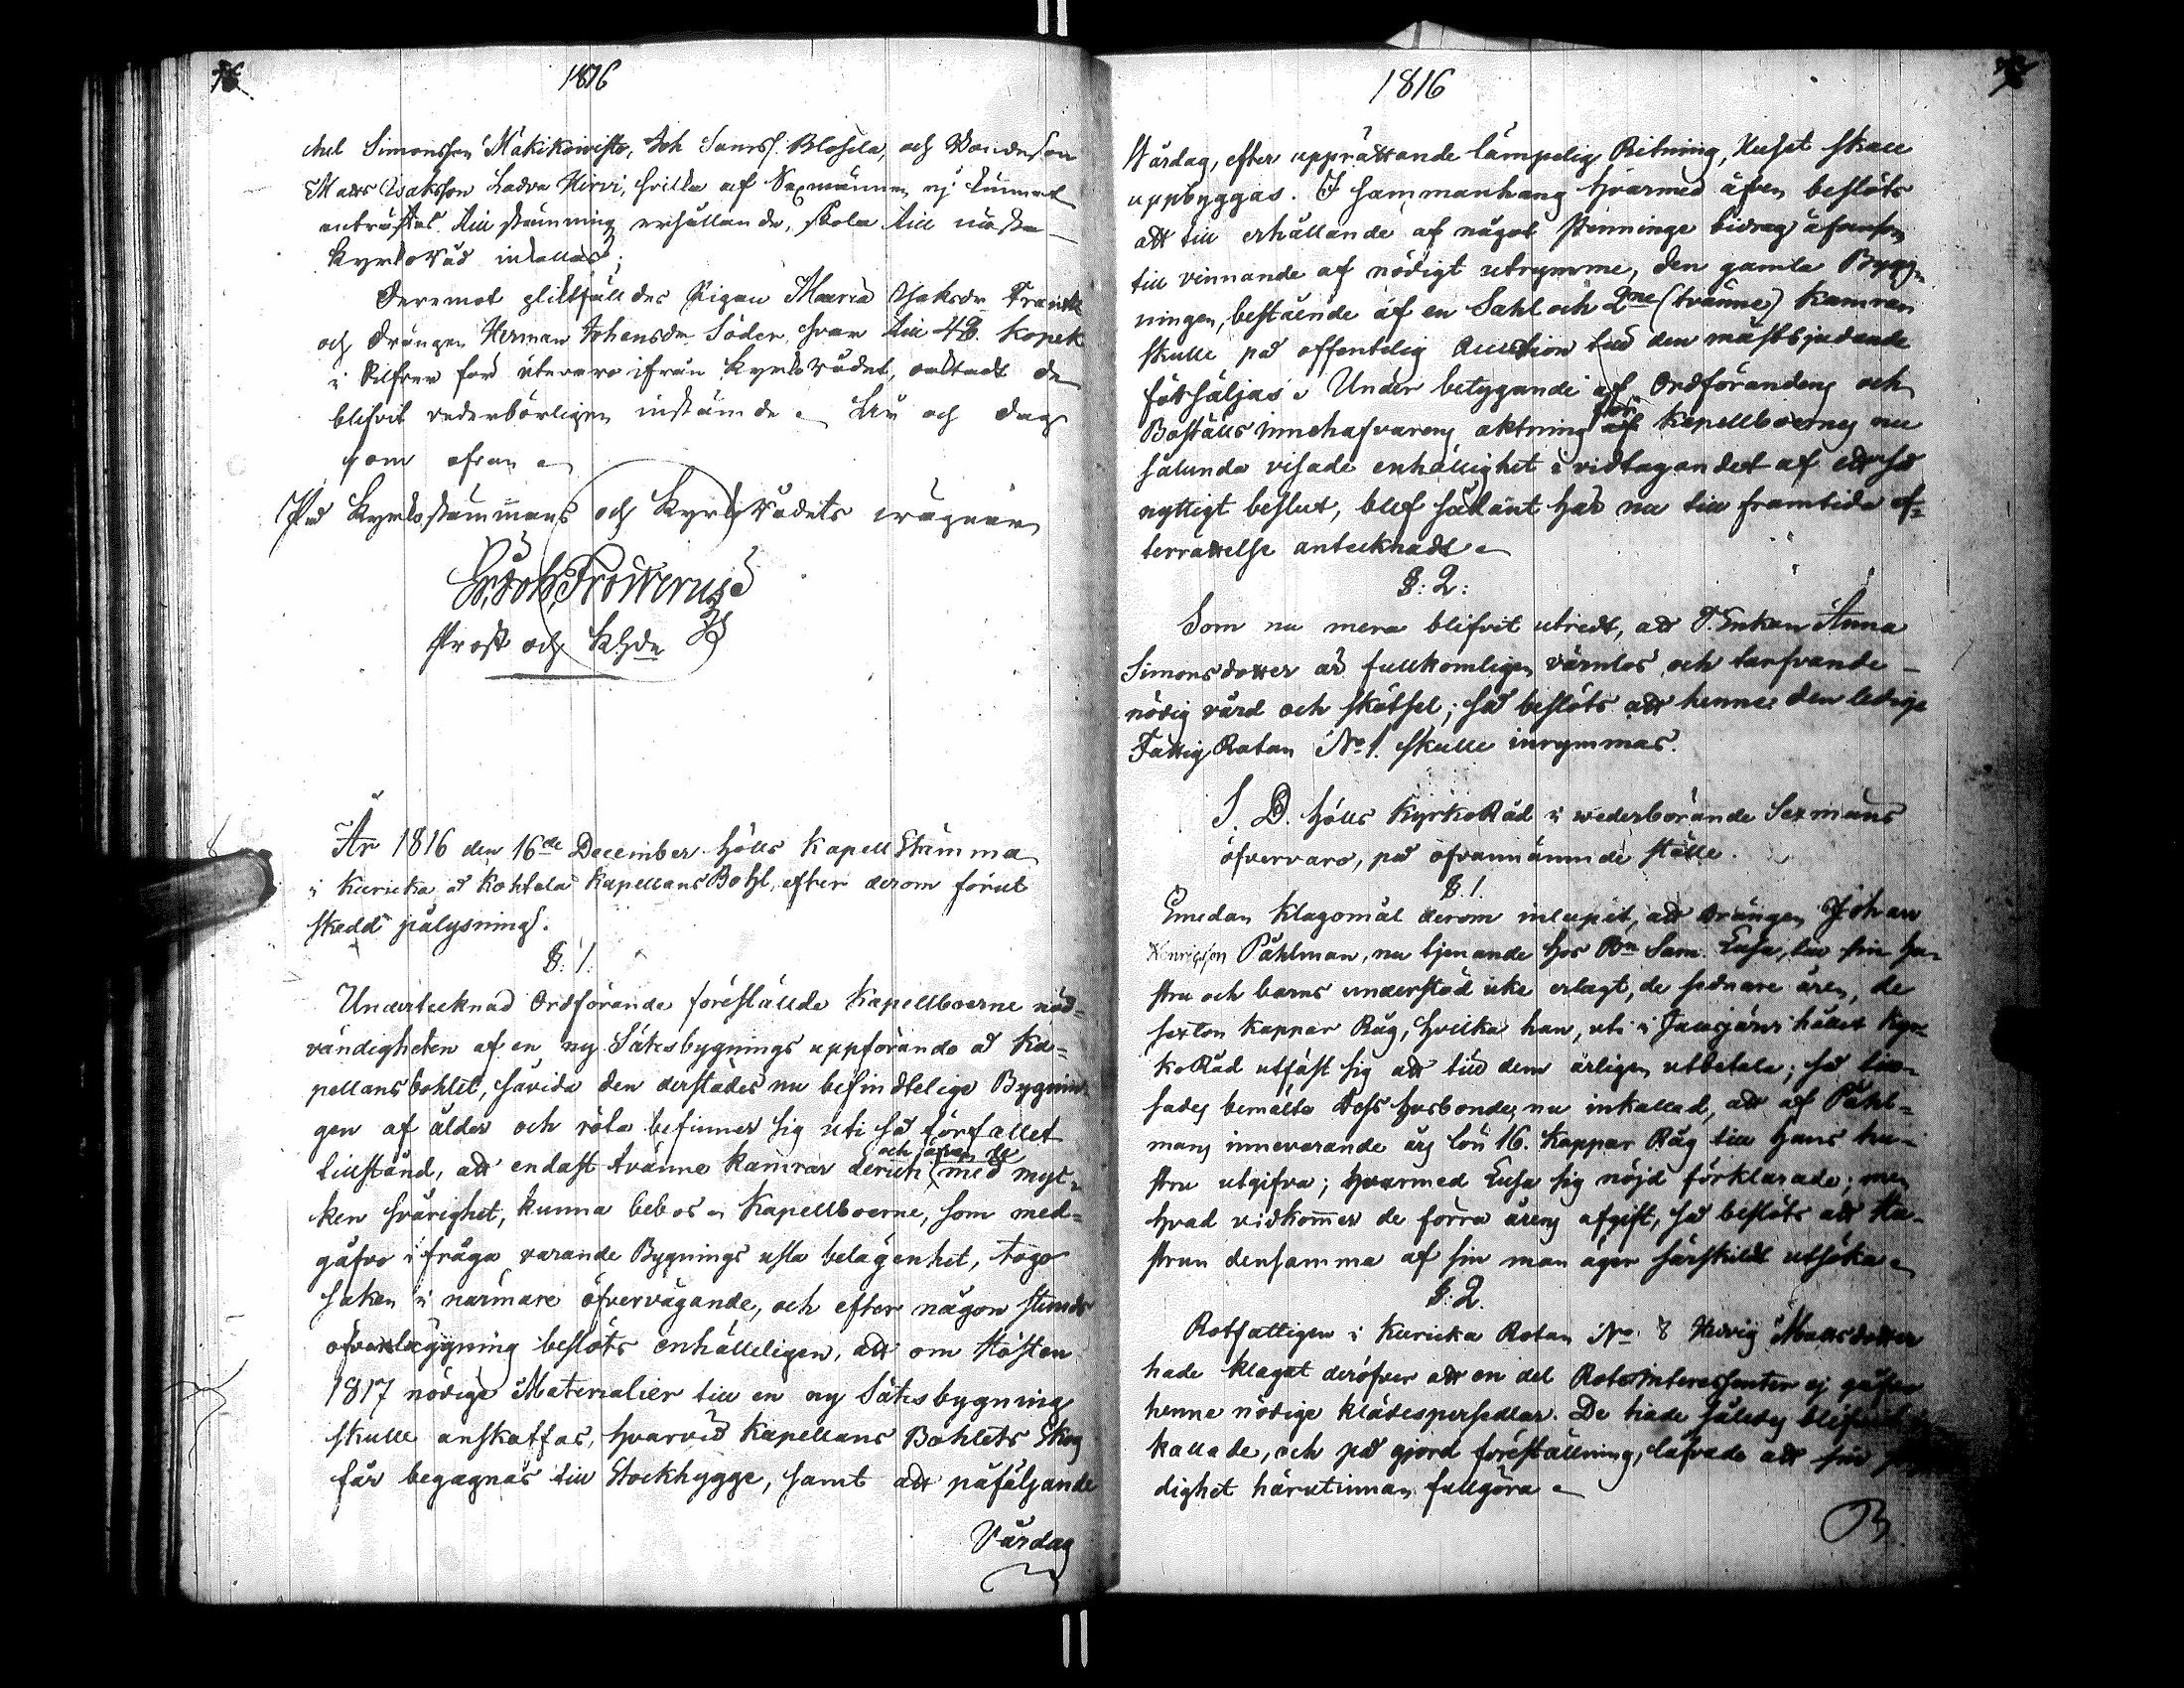 1816
Simonsson Mäkikoivisto, Joh Simss. Blosila, och Bondeson
Matts Isaksson Ladva Hirvi, hvilka af Sexmännen ej kunnat
anträffas till stämning erhållande, skola till nästa
KyrkoRåd inkallas;
Deremot pliktfälldes Pigan Maria Isaksdr
och Drängen Herman Johansdr Söder, hvar till 48. Kopek
i Silfver för utevaro ifrån KyrkoRådet, oaktadt de
blifvit vederbörligen instämde. År och dag
som ofvan
På Kyrkostämmans och KyrkoRådets vägnar
Frosterus
Prost och Khde
År 1816 den 16de December hölls Kapell Stämma
i Kuricka å Kohtala Kapellans Bohl, efter derom förut
skedd pålysning.
§: 1:
Undertecknad Ordförande föreställde Kapellboerne nöd=
vändigheten af en ny Sätesbygnings uppförande å Ka=
pellansbohlet, såvida den derstädes nu befindtelige Bygnin=
gen af ålder och röta befinner sig uti så förfallet
tillstånd, att endast tvänne kamrar deruti och äfven de med myc=
ken svårighet, kunna bebos. Kapellboerne, som med=
gåfvo i fråga varande Bygnings usla belägenhet, togo
saken i närmare öfvervägande, och efter någon stunds
öfverläggning beslöts enhälleligen, att om Hösten
1817 nödige Materialier till en ny Sätesbygning
skulle anskaffas, hvarvid Kapellans Bohlets Skog
får begagnas till Stockhygge, samt att påföljande
Vårdag
1816
Wårdag, efter upprättande lämpelig Ritning, Huset skall
uppbyggas. I sammanhang hvarmed äfven beslöts
att till erhållande af något Penninge bidrag äfvensom
till vinnande af nödigt utrymme, den gamla Bygg=
ningen, bestående af en Sahl och 2ne (tvänne) Kamrar
skulle på offentelig Auction till den mästbjudande
försäljas. Under betygande af Ordförandens och
Boställs innehafvarens aktning för Kapellboernes nu
sålunda visade enhällighet i vidtagandet af ett så
nyttigt beslut, blef sådant här nu till framtida ef=
terrättelse antecknadt.
§: 2:
Som nu mera blifvit utredt, att T. Enkan Anna
Simonsdotter är fullkomligen värnlös och tarfvande
nödig vård och skötsel; så beslöts att henne den ledige
Fattig Rotan No 1. skulle inrymmas.
S. D. hölls KyrkoRåd i wederbörande Sexmäns
öfvervaro, på ofvannämnde ställe.
§. 1.
Emedan Klagomål derom inlupit, att Drängen Johan
Henricsson Påhlman, nu tjenande hos Bn Sam. Luhsa, till sin hu=
stru och barns understöd icke erlagt, de sednare åren, de
sexton Kappar Råg, hvilka han, uti i Jalasjärvi hållet Kyr=
koRåd utfäst sig att till dem årligen utbetala; så
bemälte Dess husbonde, nu inkallad, att af Påhl=
mans innevarande års lön 16. Kappar Råg till hans hu=
stru utgifva; hvarmed Luhsa sig nöjd förklarade; men
hvad vidkommer de förra årens afgift, så beslöts att Hu=
strun densamma af sin man äger särskildt utsöka.
§: 2.
Rotfattigen i Kuricka Rotan No. 8 Hedvig Mattsdotter
hade klagat deröfver att en del RoteIntressenter ej gåfvo
henne nödige klädespersedlar. De hade således blifvit
kallade, och på gjord föreställning, lofvade att sin
dighet härutinnan fullgöra.